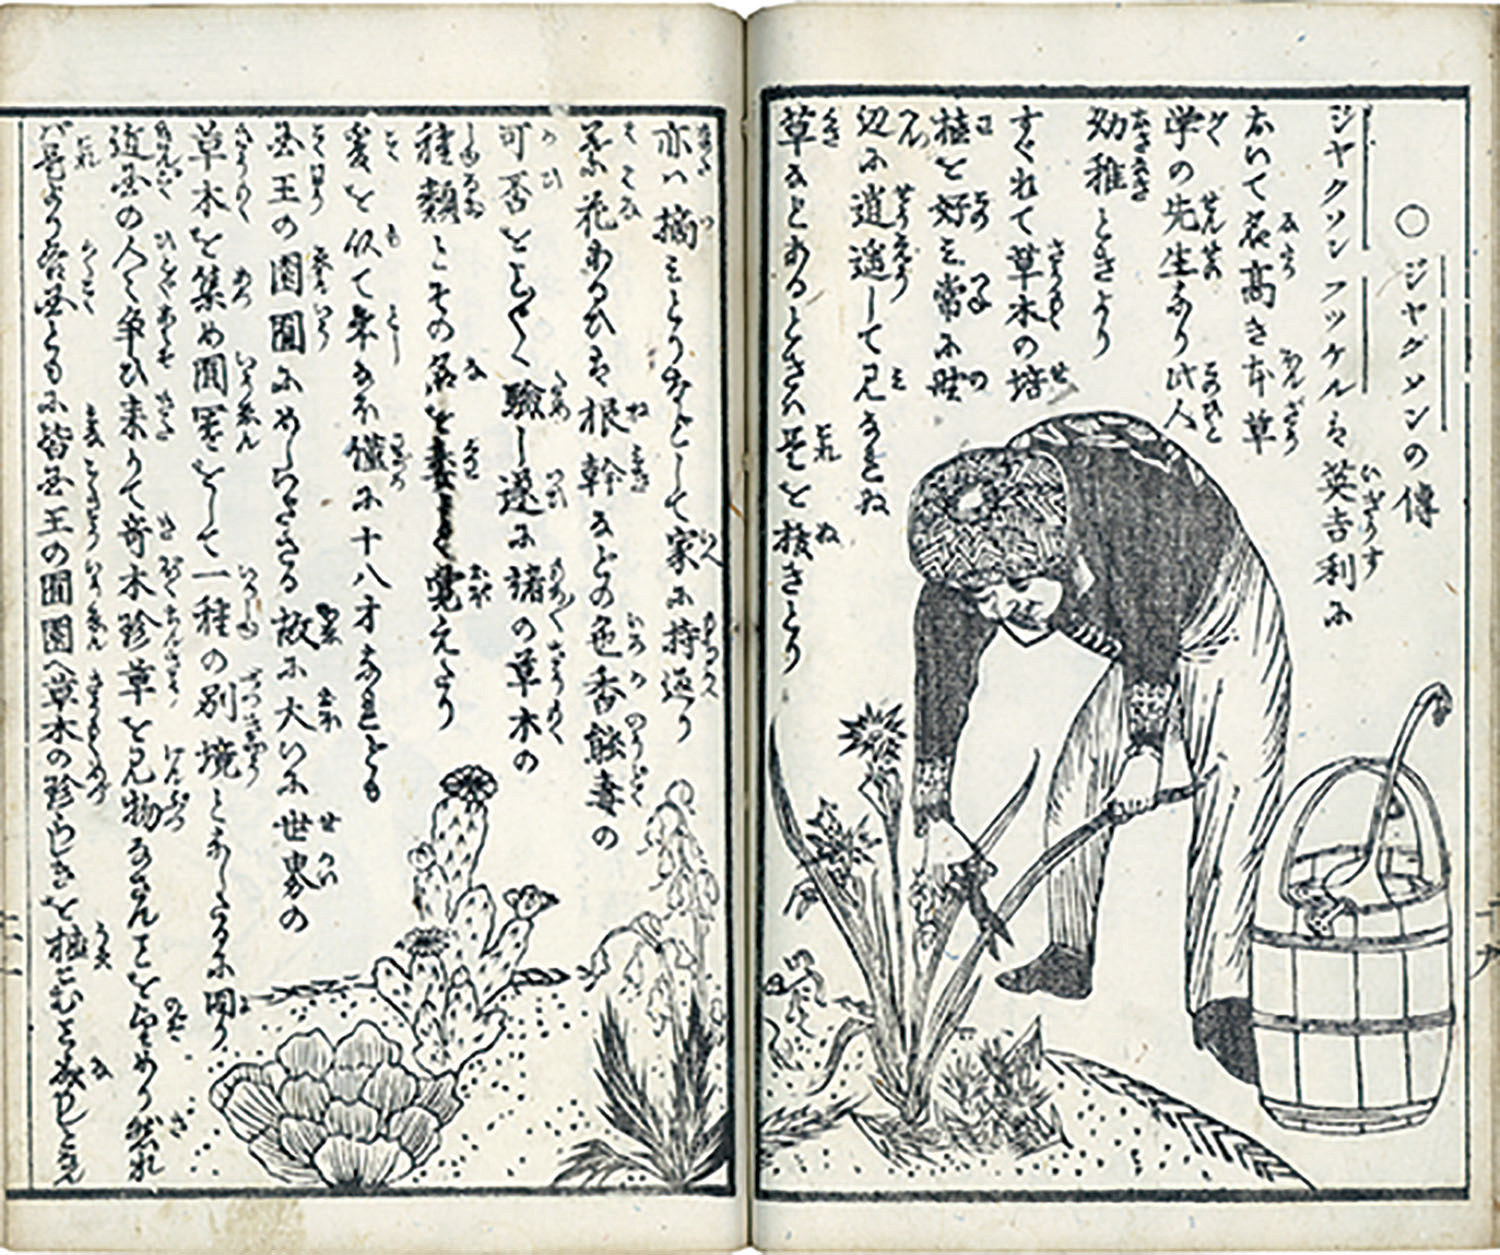 ○ジヤグソンの傳
ジヤクソンフツケルは英吉利に
おいて名高き本草
学の先生なり此人
幼稚ときより
すぐれて草木の培
植を好み常に野
辺に逍遥して見なれぬ
草なとあるときは是を抜きとり
亦は摘みとりなどして家に持返り
花あるひは根幹などの色香能毒の
可否を験し遂に諸の草木の
種類とその名を覚えたり
爰を似て年なほ僅に十八才なれとも
王の園囿にめしいださる故に大いに世界の
草木を集め園をして一種の別境となしたるに囿り
近国の人々争ひ来りて奇木珍草を見物なさんことを
是より各国ともに皆国王の囿園へ草木の珍らしきを植こむ